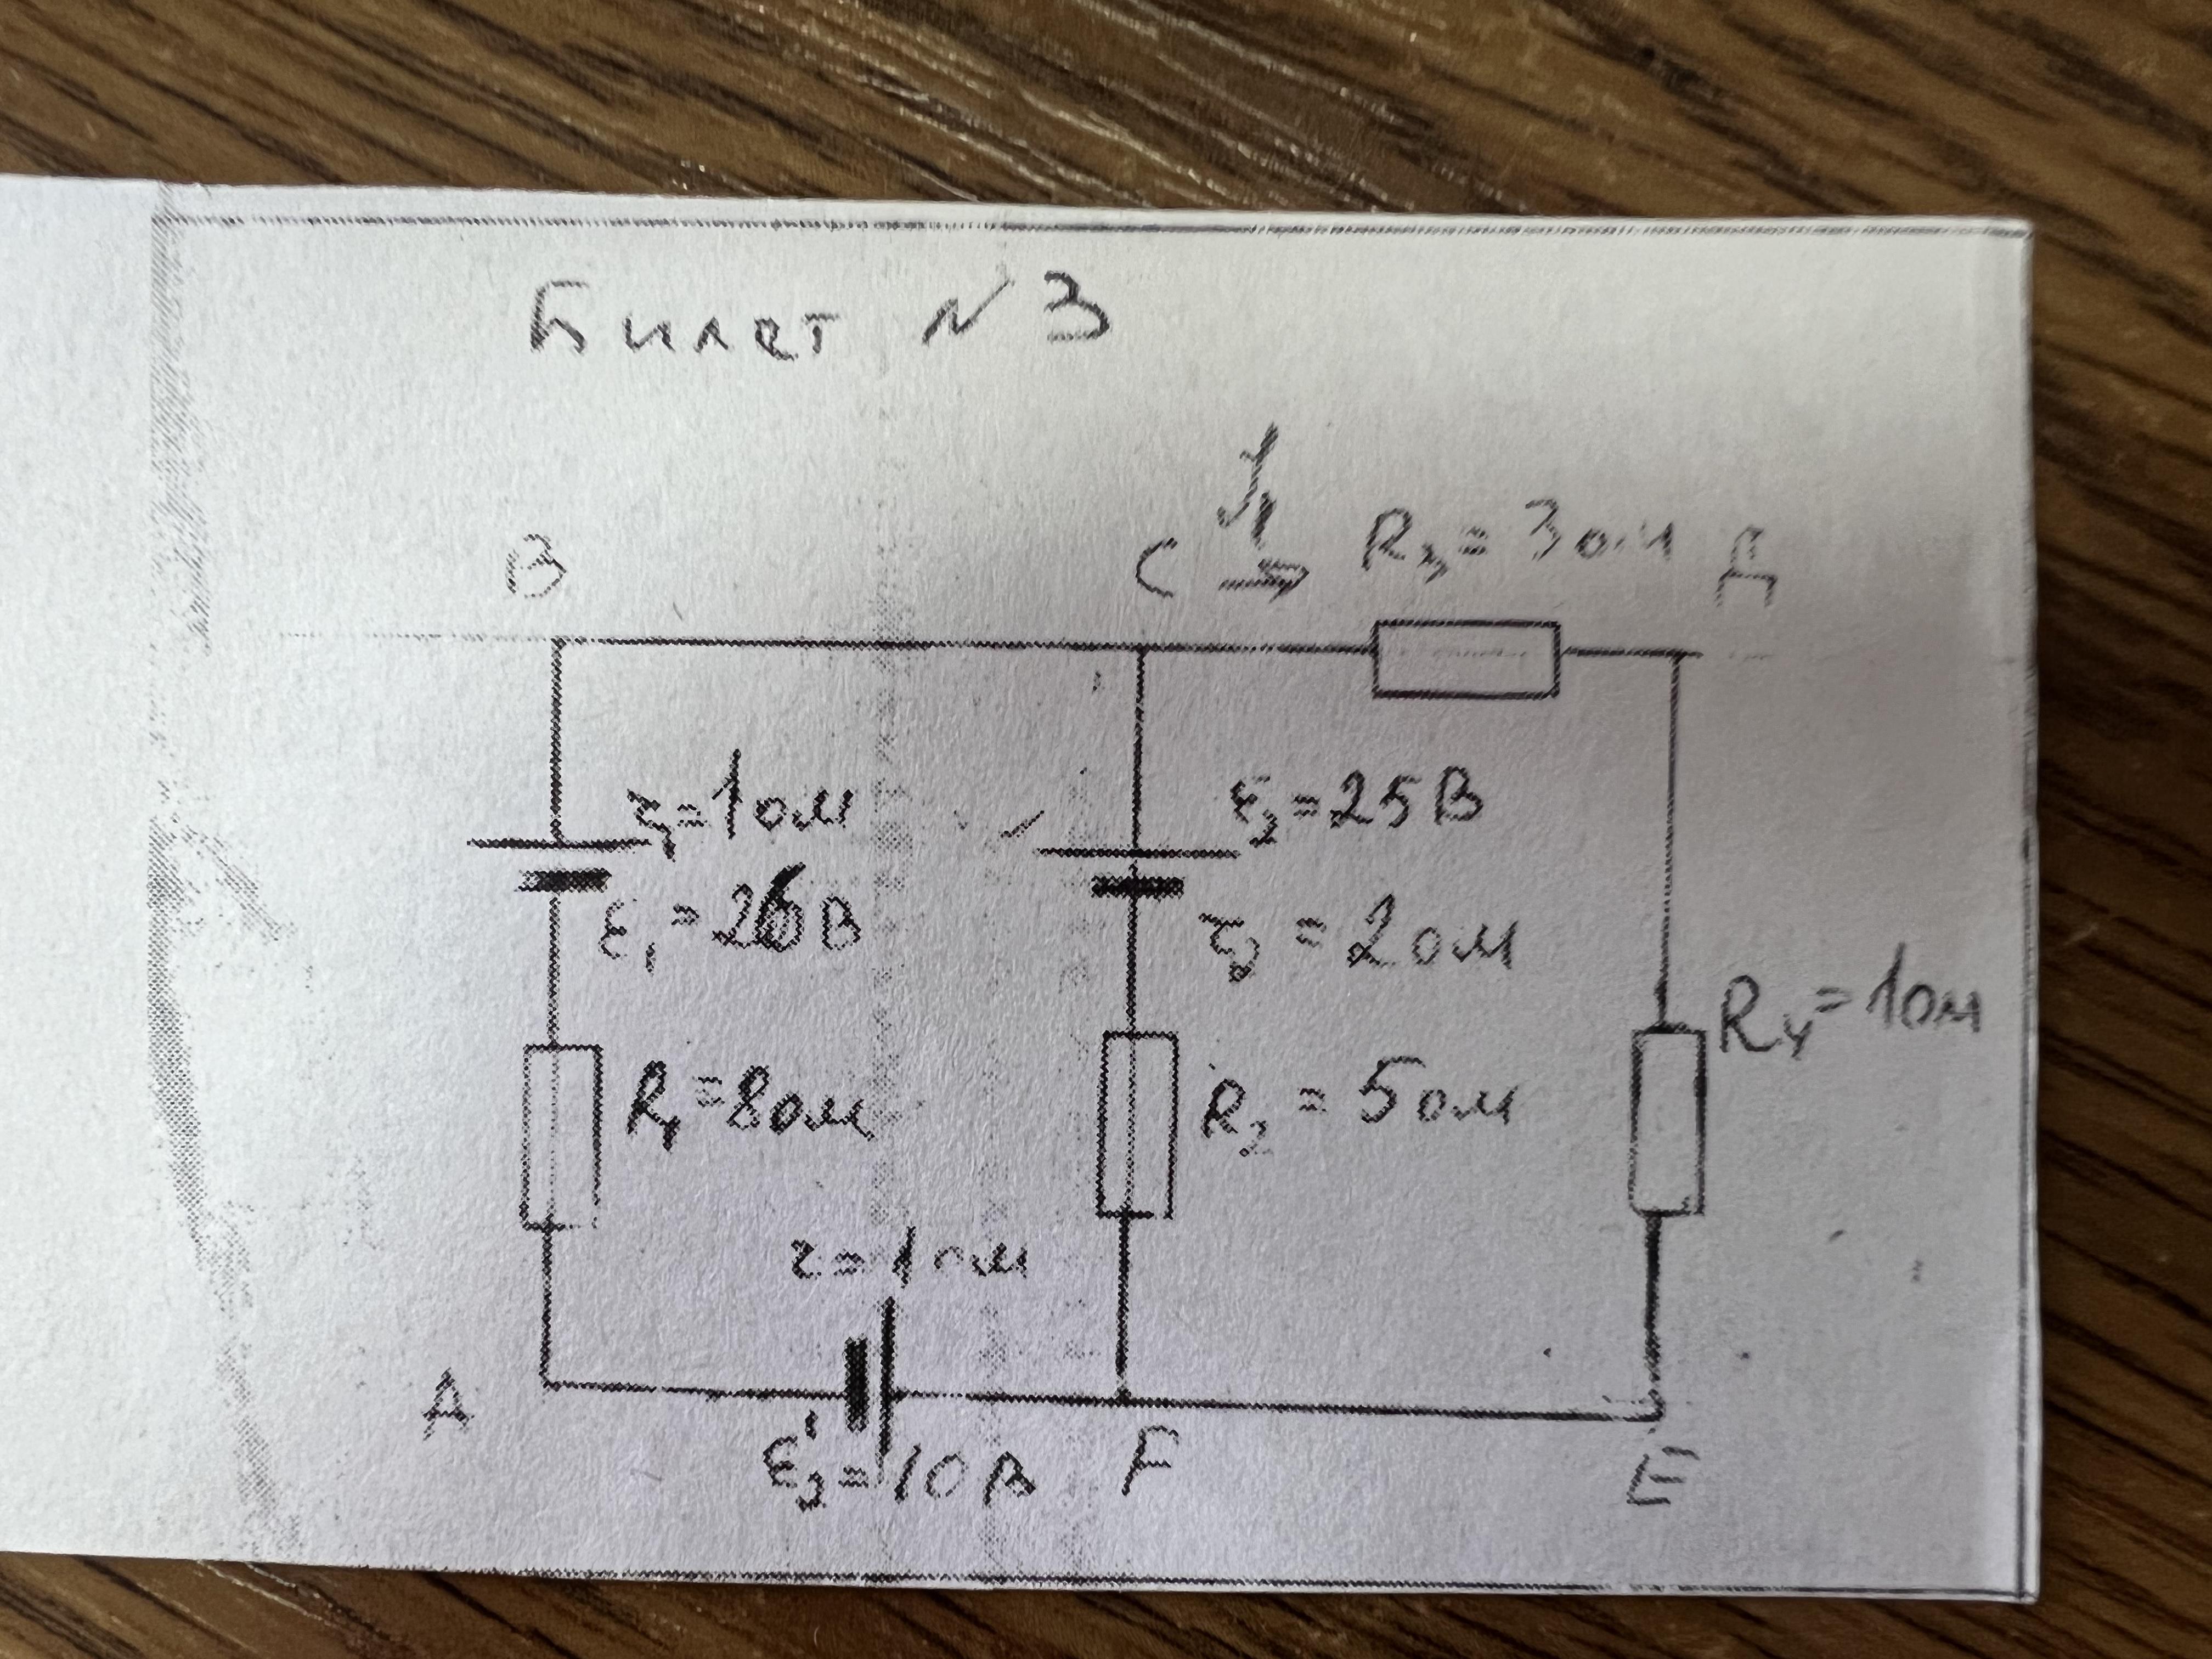 Билет N 3
I₁
B C R₃ = 3 ом Д
r₁ = 1 ом
ε₃ = 25 В
ε₁ = 26 В
r₃ = 2 ом
R₄ = 1 ом
R₁ = 8 ом
R₂ = 5 ом
r = 1 ом
A
ε'₃ = 10 В
F
E